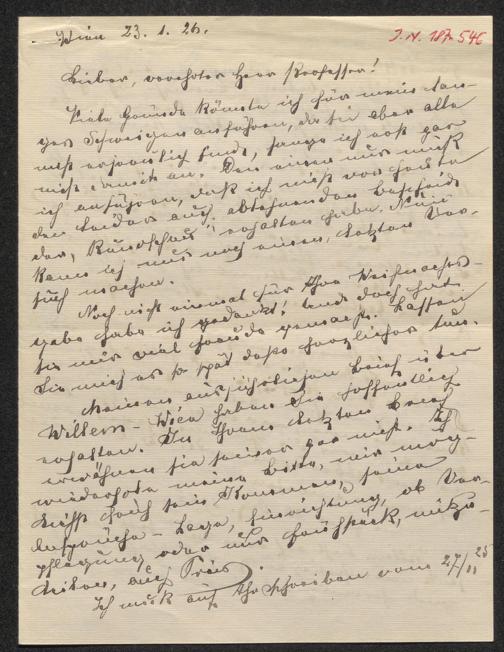 Wien 23. 1. 26.
J.N. 187.546
Lieber, verehrter Herr Professor!
Viele Gründe könnte ich für mein lan-
ges Schweigen anführen, da sie aber alle
nicht erfreulich sind, fange ich erst gar
nicht damit an. Den einen nur muß
ich anführen, daß ich nicht vor heute
den leider auch ablehnenden Bescheid
der „Rundschau" erhalten habe. Nun
kann ich nur noch einen, letzten Ver-
such machen.
Noch nicht einmal für Ihre Weihnachts-
gabe habe ich gedankt! Und doch hat
sie mir viel Freude gemacht. Lassen
Sie mich es so spät desto herzlicher tun.
Meinen ausführlichen Brief über
Willern - Wien haben Sie hoffentlich
erhalten. In Ihrem letzten Brief
erwähnen Sie seiner gar nicht. Ich
wiederhole meine Bitte, mir mög-
lichst bald sein Kommen, seine
Ansprüche - Lage, Einrichtung, ob Ver-
pflegung oder nur Frühstück, mitzu-
teilen, auch Preis.
Ich muß auf Ihr Schreiben vom 27/11 25